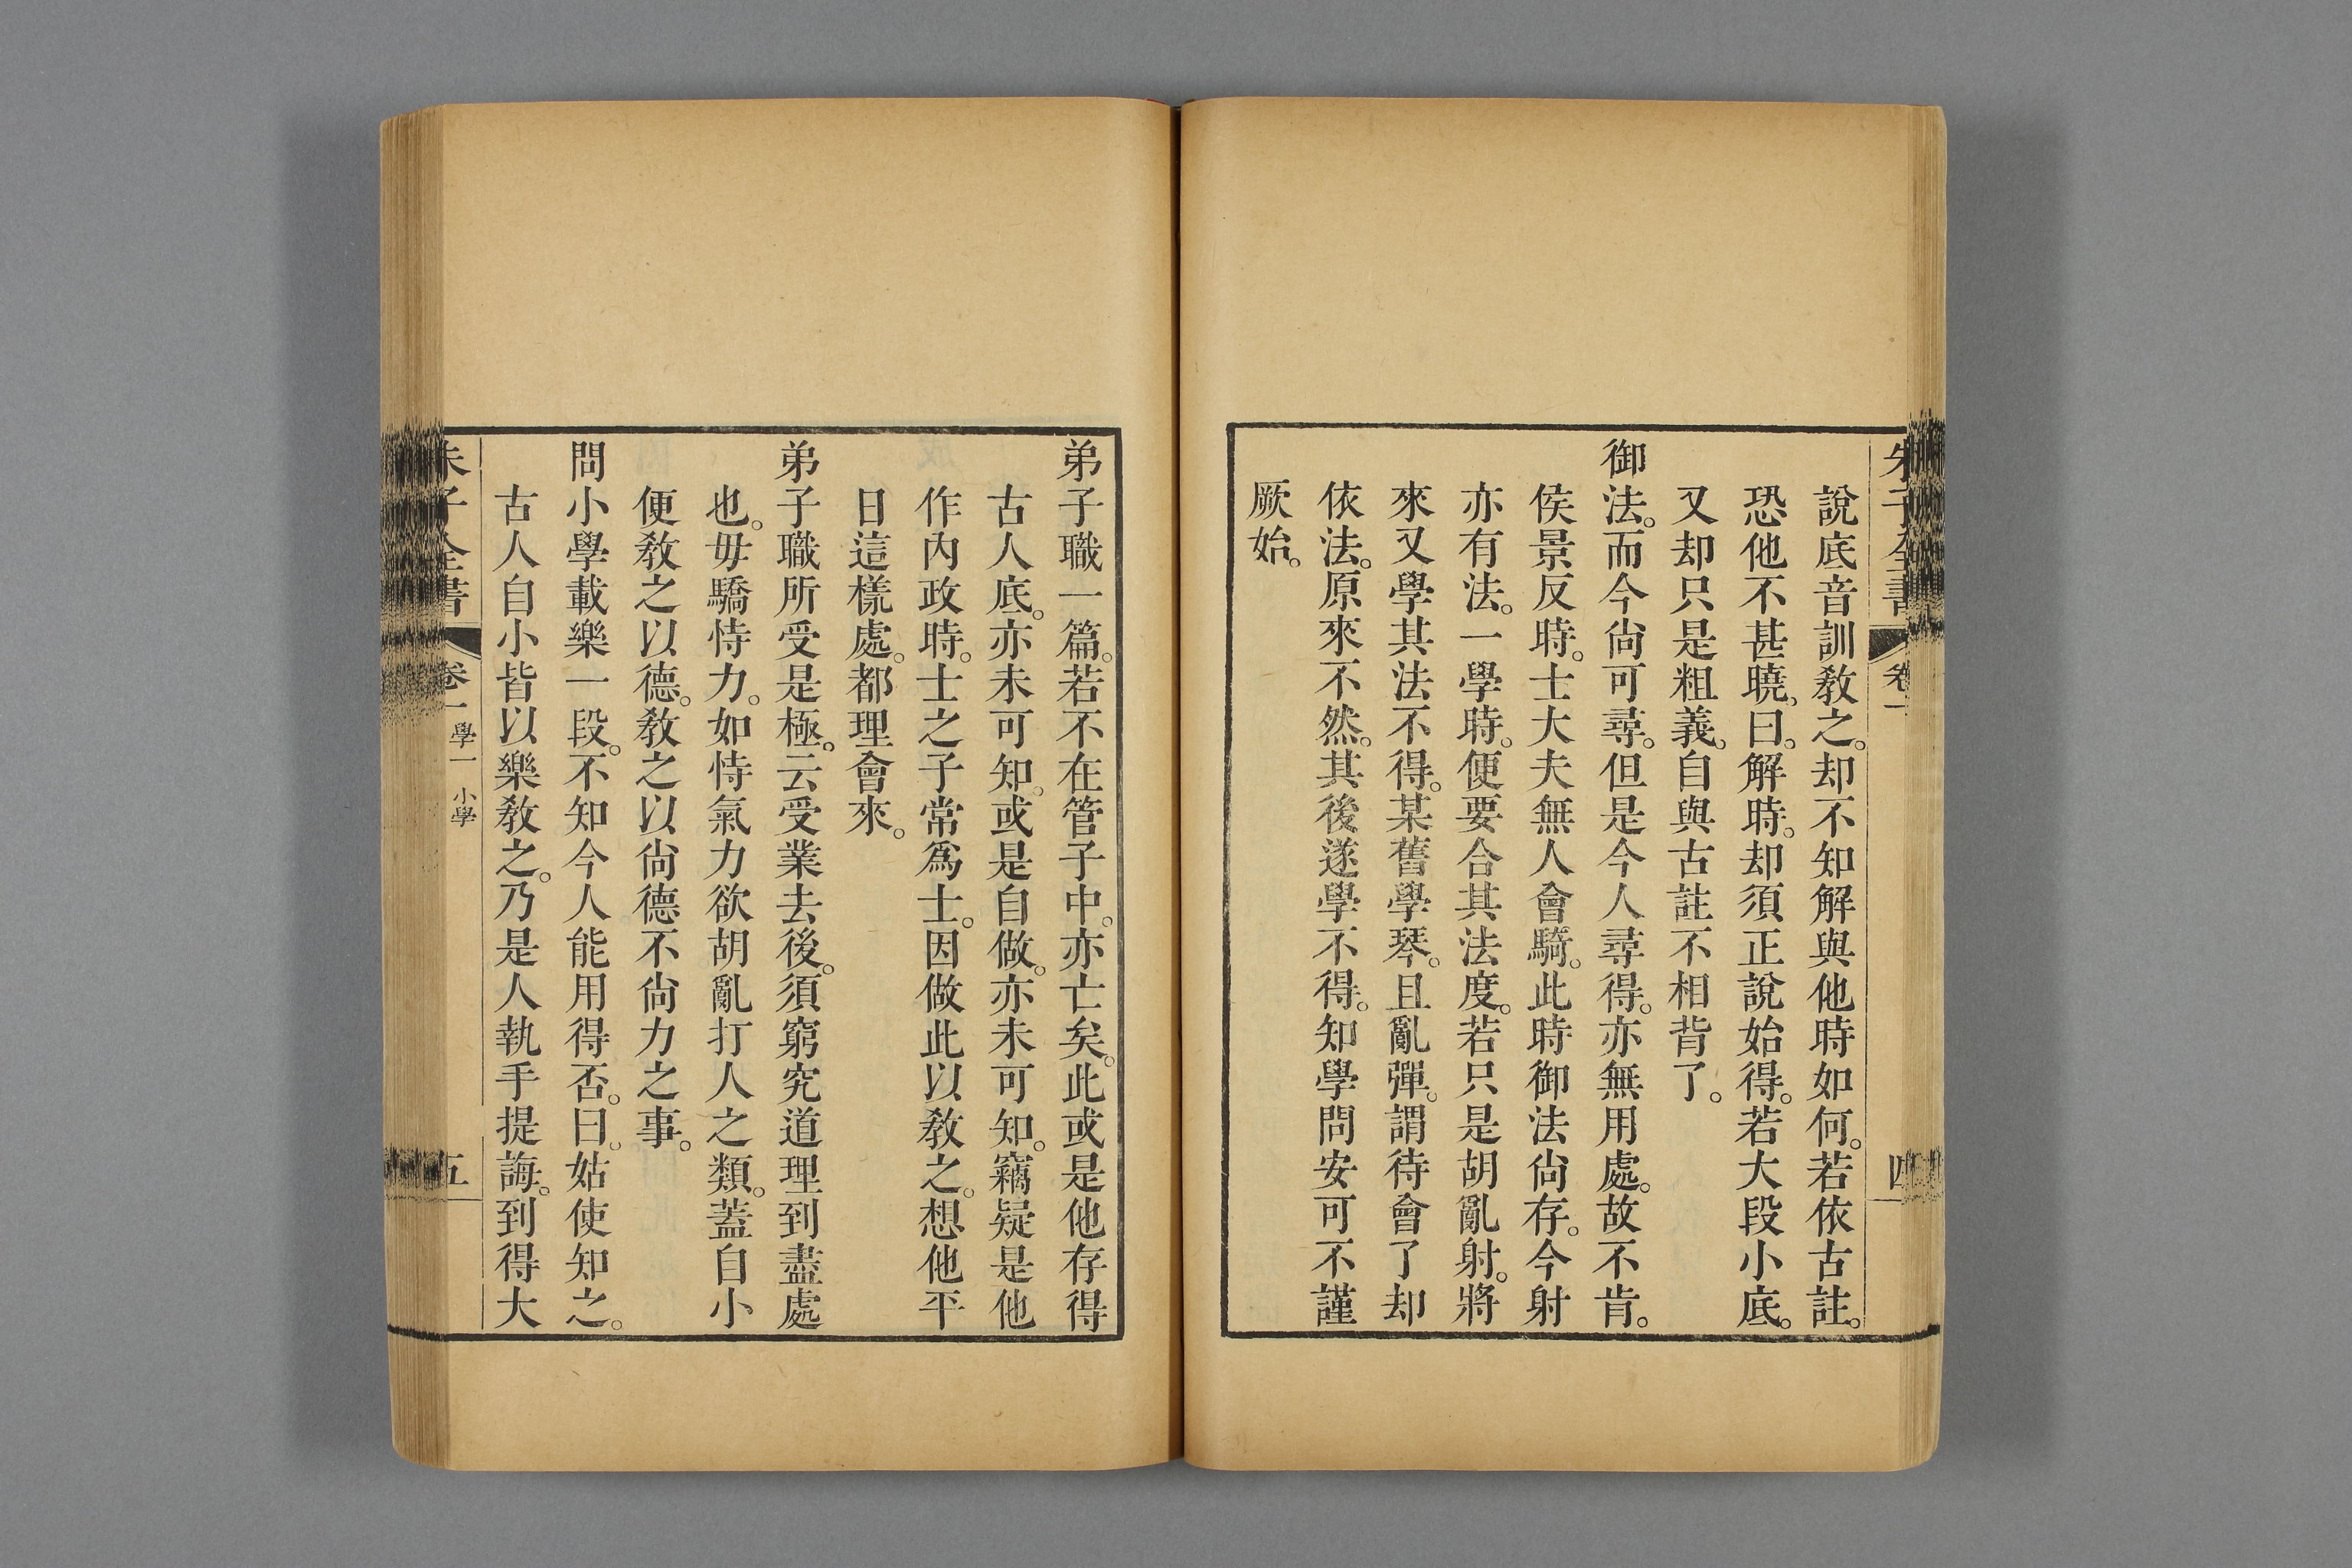 朱子全書 卷一 四
說底音訓敎之。却不知解與他時如何。若依古註。
恐他不甚曉。曰。解時。却須正說始得。若大段小底。
又却只是粗義。自與古註不相背了。
御法。而今尙可尋。但是今人尋得。亦無用處。故不肯。
侯景反時。士大夫無人會騎。此時御法尙存。今射
亦有法。一學時。便要合其法度。若只是胡亂射。將
來又學其法不得。某舊學琴。且亂彈。謂待會了却
依法。原來不然。其後遂學不得。知學問安可不謹
厥始。
弟子職一篇。若不在管子中。亦亡矣。此或是他存得
古人底。亦未可知。或是自做。亦未可知。竊疑是他
作內政時。士之子常爲士。因做此以敎之。想他平
日這樣處。都理會來。
弟子職所受是極。云受業去後。須窮究道理到盡處
也。毋驕恃力。如恃氣力欲胡亂打人之類。蓋自小
便敎之以德。敎之以尙德不尙力之事。
問小學載樂一段。不知今人能用得否。曰。姑使知之。
古人自小皆以樂敎之。乃是人執手提誨。到得大
朱子全書 卷一 學一 小學 五